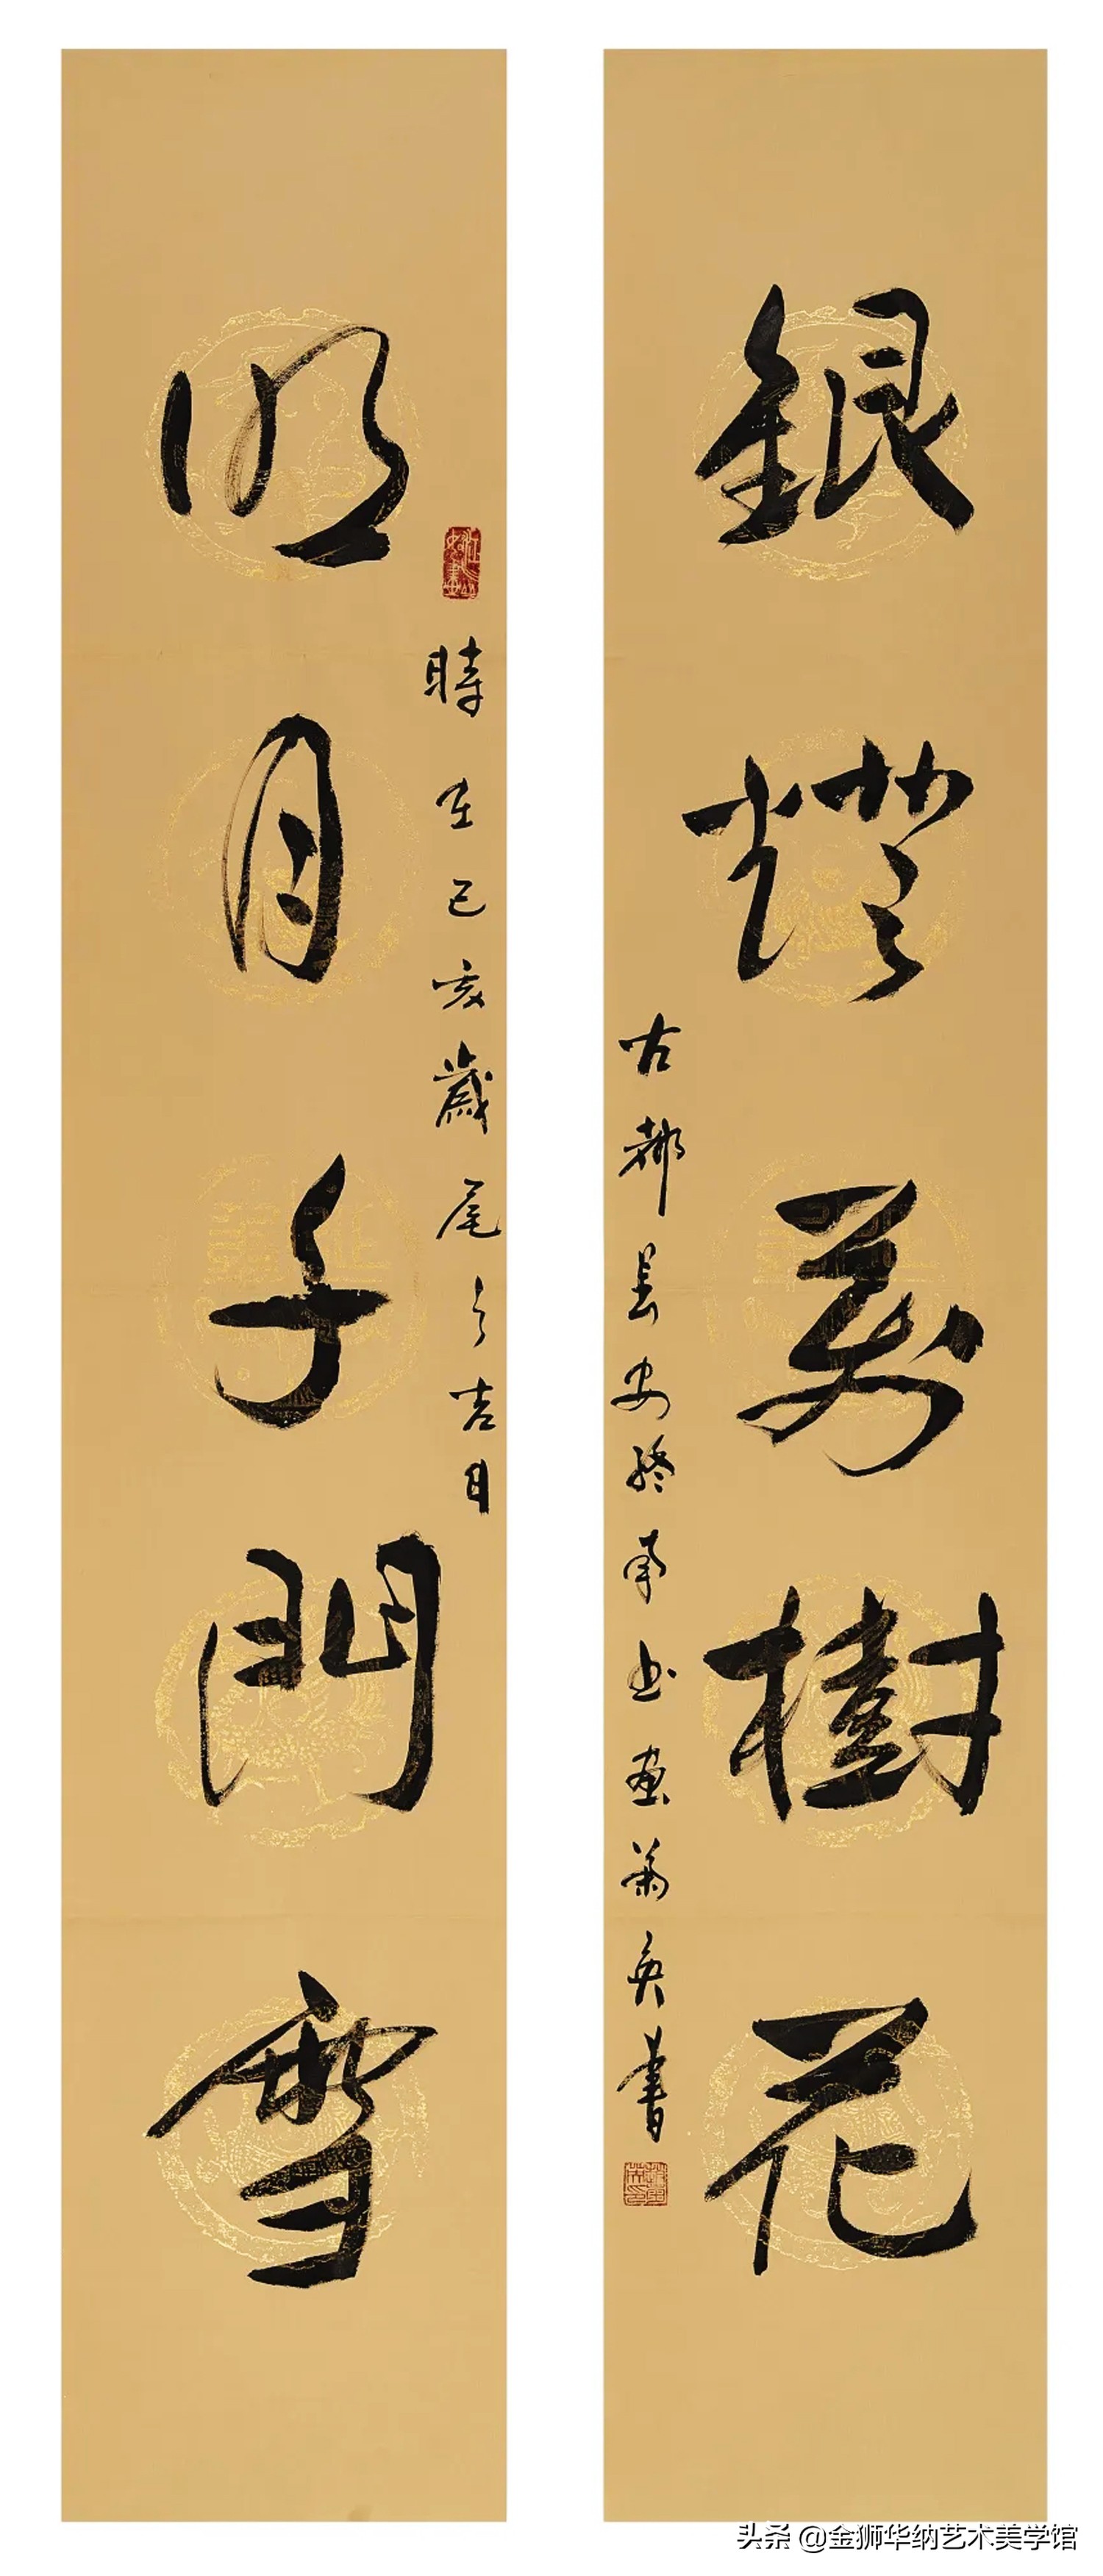 銀燈萬樹花
古都長安終南书畫書
明月千門雪
江山如畫
時在己亥歲尾之吉日
头条 @金狮华纳艺术美学馆